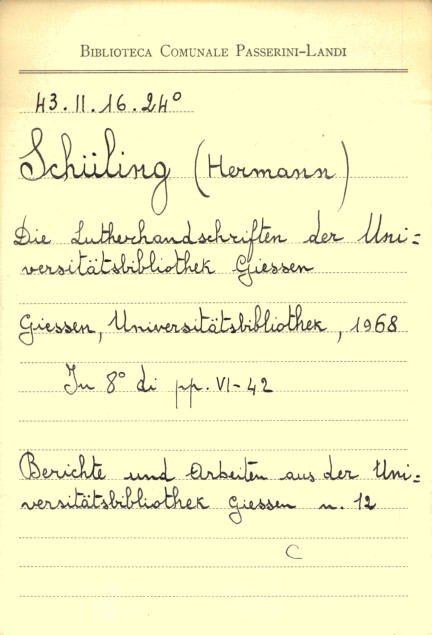 BIBLIOTECA COMUNALE PASSERINI-LANDI
43.II.16.24°
Schüling (Hermann)
Die Lutherhandschriften der Uni=
versitätsbibliothek Giessen
Giessen, Universitätsbibliothek, 1968
In 8° di pp. VI-42
Berichte und Arbeiten aus der Uni=
versitätsbibliothek Giessen n. 12
C